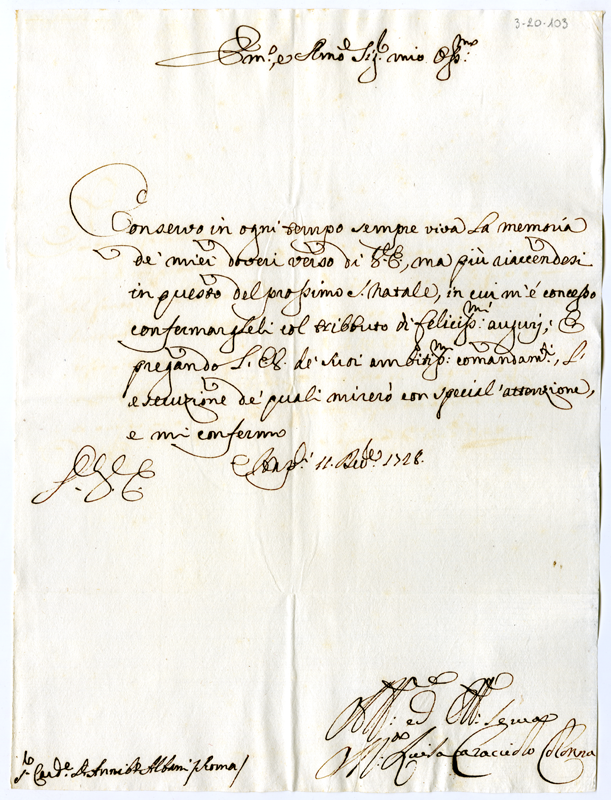 3-20-103
Em.o, e Rmo Sig.r mio Oss.mo
Conservo in ogni tempo sempre viva la memoria
de' miei doveri verso di V.E., ma più riaccendesi
in questo del prossimo S. Natale, in cui m'é concesso
confermargleli col tributo di feliciss.mi augurj; E
pregando V. E. de' suoi ambitiss.mi comandam.ti, l'
esecuzione de' quali mirerò con special'attenzione,
e mi confermo
Nap.i 11. Xbre 1728.
ed Obb.
M.a Luisa Caracciolo Colonna
S.r Card.e D. Annib.e Albani /Roma/